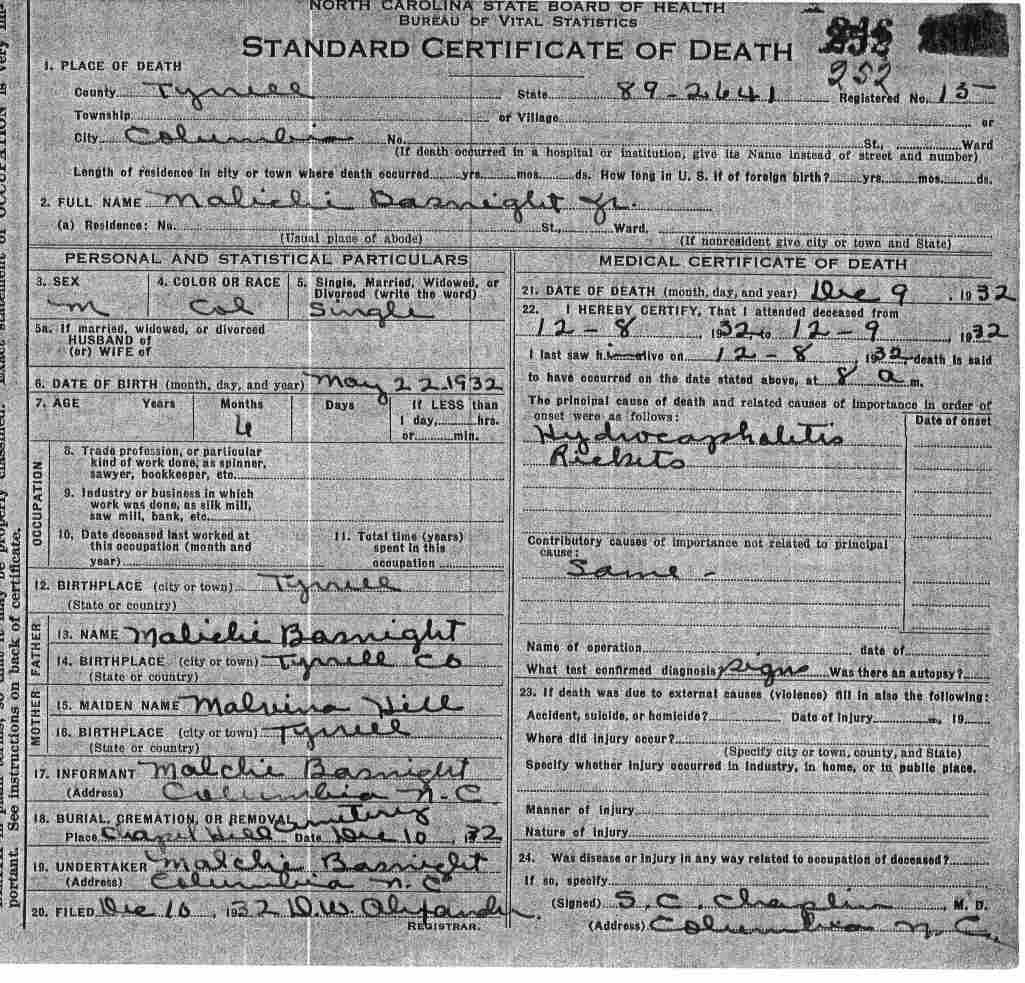 NORTH CAROLINA STATE BOARD OF HEALTH
BUREAU OF VITAL STATISTICS
STANDARD CERTIFICATE OF DEATH
252
1. PLACE OF DEATH
County Tyrrell State 89-2641 Registered No. 15
Township or Village or
City Columbia No. St., Ward
(If death occurred in a hospital or institution, give its Name instead of street and number)
Length of residence in city or town where death occurred yrs. mos. ds. How long in U. S. if of foreign birth? yrs. mos. ds.
2. FULL NAME Malichi Basnight Jr.
(a) Residence: No. St., Ward.
(Usual place of abode) (If nonresident give city or town and State)
PERSONAL AND STATISTICAL PARTICULARS
3. SEX 4. COLOR OR RACE 5. Single, Married, Widowed, or Divorced (write the word)
M Col Single
5a. If married, widowed, or divorced
HUSBAND of
(or) WIFE of
6. DATE OF BIRTH (month, day, and year) May 22 1932
7. AGE Years Months Days If LESS than
6 1 day, hrs.
or min.
OCCUPATION
8. Trade profession, or particular
kind of work done, as spinner,
sawyer, bookkeeper, etc.
9. Industry or business in which
work was done, as silk mill,
saw mill, bank, etc.
10. Date deceased last worked at
this occupation (month and
year)
11. Total time (years)
spent in this
occupation
12. BIRTHPLACE (city or town) Tyrrell
(State or country)
FATHER
13. NAME Malichi Basnight
14. BIRTHPLACE (city or town) Tyrrell Co
(State or country)
MOTHER
15. MAIDEN NAME Malvina Hill
16. BIRTHPLACE (city or town) Tyrrell
(State or country)
17. INFORMANT Malchie Basnight
(Address) Columbia N.C
18. BURIAL, CREMATION, OR REMOVAL Cemetery
Place Chapel Hill Date Dec 10, 1932
19. UNDERTAKER Malchie Basnight
(Address) Columbia N.C
20. FILED Dec 10, 1932 D.W. Alexander
REGISTRAR.
MEDICAL CERTIFICATE OF DEATH
21. DATE OF DEATH (month, day, and year) Dec 9, 1932
22. I HEREBY CERTIFY, That I attended deceased from
12-8, 1932, to 12-9 1932
I last saw h alive on 12-8, 1932 death is said
to have occurred on the date stated above, at 8 a m.
The principal cause of death and related causes of importance in order of
onset were as follows: Date of onset
Hydrocaphaletis
Rickets
Contributory causes of importance not related to principal
cause:
Same -
Name of operation date of
What test confirmed diagnosis signs Was there an autopsy?
23. If death was due to external causes (violence) fill in also the following:
Accident, suicide, or homicide? Date of injury , 19
Where did injury occur?
(Specify city or town, county, and State)
Specify whether injury occurred in industry, in home, or in public place.
Manner of injury
Nature of injury
24. Was disease or injury in any way related to occupation of deceased?
If so, specify
(Signed) S.C. Chaplin, M. D.
(Address) Columbia N.C.
portant. See instructions on back of certificate.